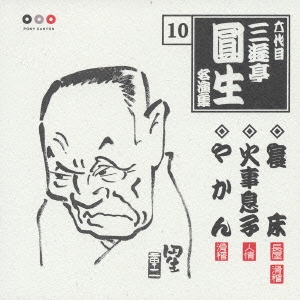 PONY CANYON
10
六代目
三遊亭
圓生
名演集
寝床
長屋 滑稽
火事息子
人情
やかん
滑稽